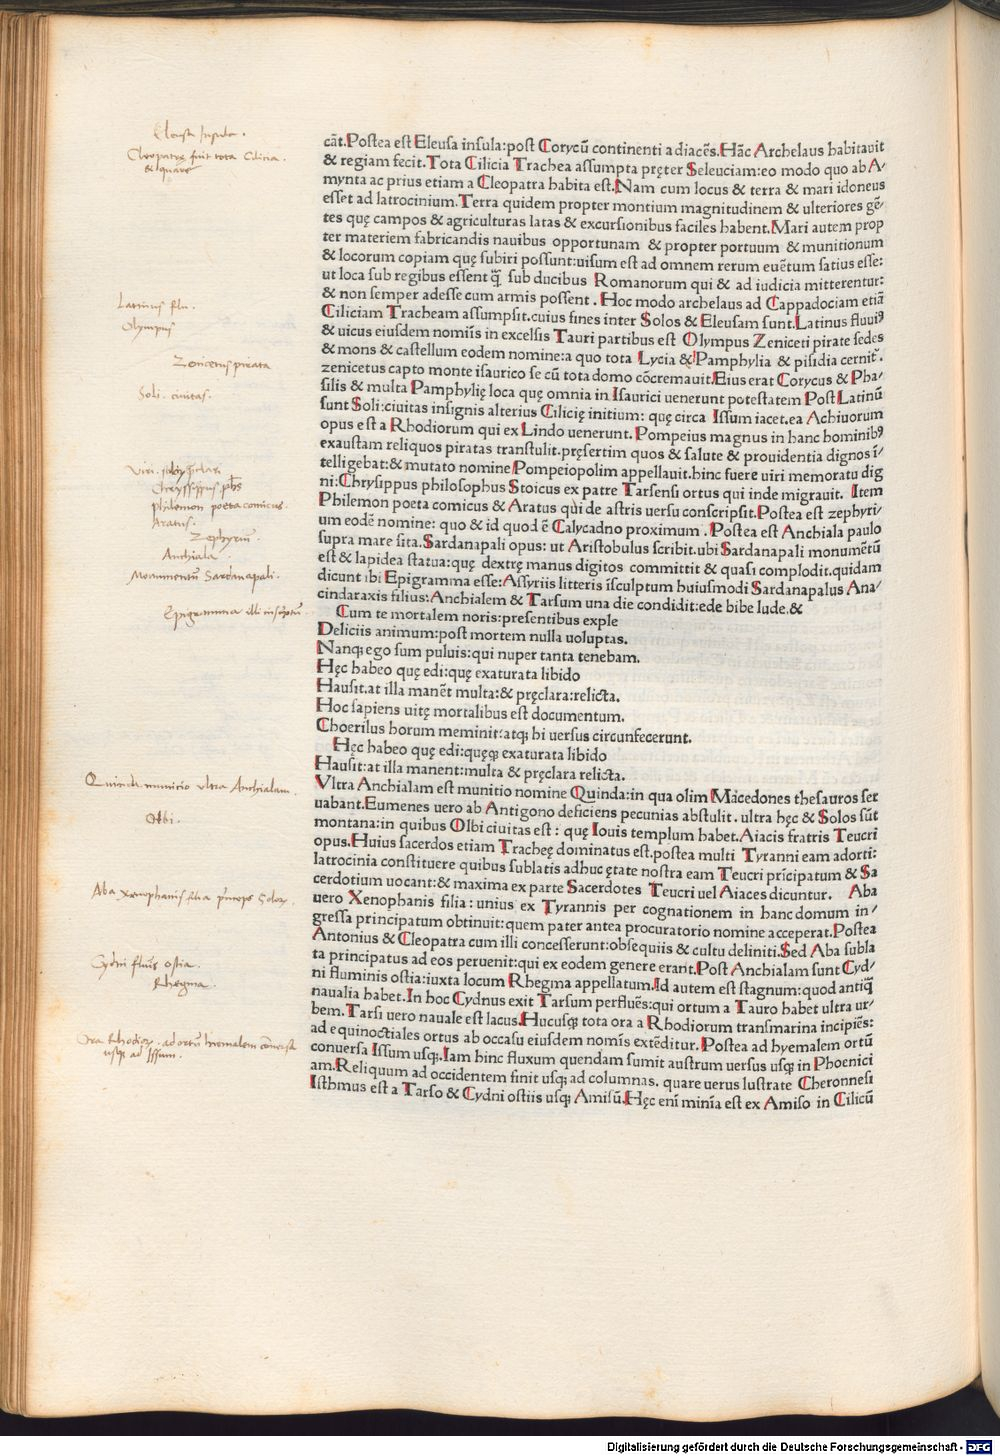 Eleusa Insula.
Cleopatrę fuit tota Cilicia.
Latinus flu.
Olympus
Zenicetus pirata
Soli. ciuitas.
Chrysippus phs
philemon poeta comicus.
Aratus.
Zephyriū.
Anchiala.
Monumentū Sardanapali.
Epigramma illi inscriptū.
Quinda municio ultra Anchialam.
Olbi.
Aba Xenophanis filia
Cydni fluuis ostia.
Rhegma.
Ora Rhodiorꝝ. ad ortū hiemalem cōuersa
usqꝫ ad Issum.
cāt.Postea est Eleusa insula:post Corycū continenti adiacēs.Hāc Archelaus habitauit
& regiam fecit.Tota Cilicia Trachea assumpta pręter Seleuciam:eo modo quo ab A⸗
mynta ac prius etiam a Cleopatra habita est.Nam cum locus & terra & mari idoneus
esset ad latrocinium.Terra quidem propter montium magnitudinem & ulteriores gē⸗
tes quę campos & agriculturas latas & excursionibus faciles habent.Mari autem prop
ter materiem fabricandis nauibus opportunam & propter portuum & munitionum
& locorum copiam quę subiri possunt:uisum est ad omnem rerum euētum satius esse:
ut loca sub regibus essent q̄ sub ducibus Romanorum qui & ad iudicia mitterentur:
& non semper adesse cum armis possent . Hoc modo archelaus ad Cappadociam etiā
Ciliciam Tracheam assumpsit.cuius fines inter Solos & Eleusam sunt.Latinus fluuiꝰ
& uicus eiusdem nomiīs in excelsis Tauri partibus est Olympus Zeniceti pirate sedes
& mons & castellum eodem nomine:a quo tota Lycia & Pamphylia & pisidia cernit᷑.
zenicetus capto monte isaurico se cū tota domo cōcremauit.Eius erat Corycus & Pha⸗
silis & multa Pamphylię loca quę omnia in Isaurici uenerunt potestatem Post Latinū
sunt Soli:ciuitas insignis alterius Cilicię initium: quę circa Issum iacet.ea Achiuorum
opus est a Rhodiorum qui ex Lindo uenerunt. Pompeius magnus in hanc hominibꝰ
exaustam reliquos piratas transtulit.pręsertim quos & salute & prouidentia dignos ī⸗
telligebat:& mutato nomine Pompeiopolim appellauit.hinc fuere uiri memoratu dig
ni:Chrysippus philosophus Stoicus ex patre Tarsensi ortus qui inde migrauit. Item
Philemon poeta comicus & Aratus qui de astris uersu conscripsit.Postea est zephyri⸗
um eodē nomine: quo & id quod ē Calycadno proximum . Postea est Anchiala paulo
supra mare sita.Sardanapali opus: ut Aristobulus scribit.ubi Sardanapali monumētū
est & lapidea statua:quę dextrę manus digitos committit & quasi complodit.quidam
dicunt ibi Epigramma esse:Assyriis litteris isculptum huiusmodi Sardanapalus Ana⸗
cindaraxis filius:Anchialem & Tarsum una die condidit:ede bibe lude.&
Cum te mortalem noris:presentibus exple
Deliciis animum:post mortem nulla uoluptas.
Nanqꝫ ego sum puluis:qui nuper tanta tenebam.
Hęc habeo quę edi:quę exaturata libido
Hausit.at illa manēt multa:& pręclara:relicta.
Hoc sapiens uitę mortalibus est documentum.
Choerilus horum meminit:atqꝫ hi uersus circunfecerunt.
Hęc habeo quę edi:quęqꝫ exaturata libido
Hausit:at illa manent:multa & pręclara relicta.
Vltra Anchialam est munitio nomine Quinda:in qua olim Macedones thesauros ser
uabant.Eumenes uero ab Antigono deficiens pecunias abstulit. ultra hęc & Solos sūt
montana:in quibus Olbi ciuitas est : quę Iouis templum habet.Aiacis fratris Teucri
opus.Huius sacerdos etiam Tracheę dominatus est.postea multi Tyranni eam adorti:
latrocinia constituere quibus sublatis adhuc ętate nostra eam Teucri prīcipatum & Sa
cerdotium uocant:& maxima ex parte Sacerdotes Teucri uel Aiaces dicuntur. Aba
uero Xenophanis filia : unius ex Tyrannis per cognationem in hanc domum in⸗
gressa principatum obtinuit:quem pater antea procuratorio nomine acceperat.Postea
Antonius & Cleopatra cum illi concesserunt:obsequiis & cultu deliniti.Sed Aba subla
ta principatus ad eos peruenit:qui ex eodem genere erant.Post Anchialam sunt Cyd⸗
ni fluminis ostia:iuxta locum Rhegma appellatum.Id autem est stagnum:quod antiq̄
naualia habet.In hoc Cydnus exit Tarsum perfluēs:qui ortum a Tauro habet ultra ur⸗
bem.Tarsi uero nauale est lacus.Hucusqꝫ tota ora a Rhodiorum transmarina incipiēs:
ad equinoctiales ortus ab occasu eiusdem nomīs extēditur. Postea ad hyemalem ortū
conuersa Issum usqꝫ.Iam hinc fluxum quendam sumit austrum uersus usqꝫ in Phoenici
am.Reliquum ad occidentem finit usqꝫ ad columnas. quare uerus lustrate Cheronnesi
Isthmus est a Tarso & Cydni ostiis usqꝫ Amisū.Hęc enī minīa est ex Amiso in Cilicū
Digitalisierung gefördert durch die Deutsche Forschungsgemeinschaft - DFG